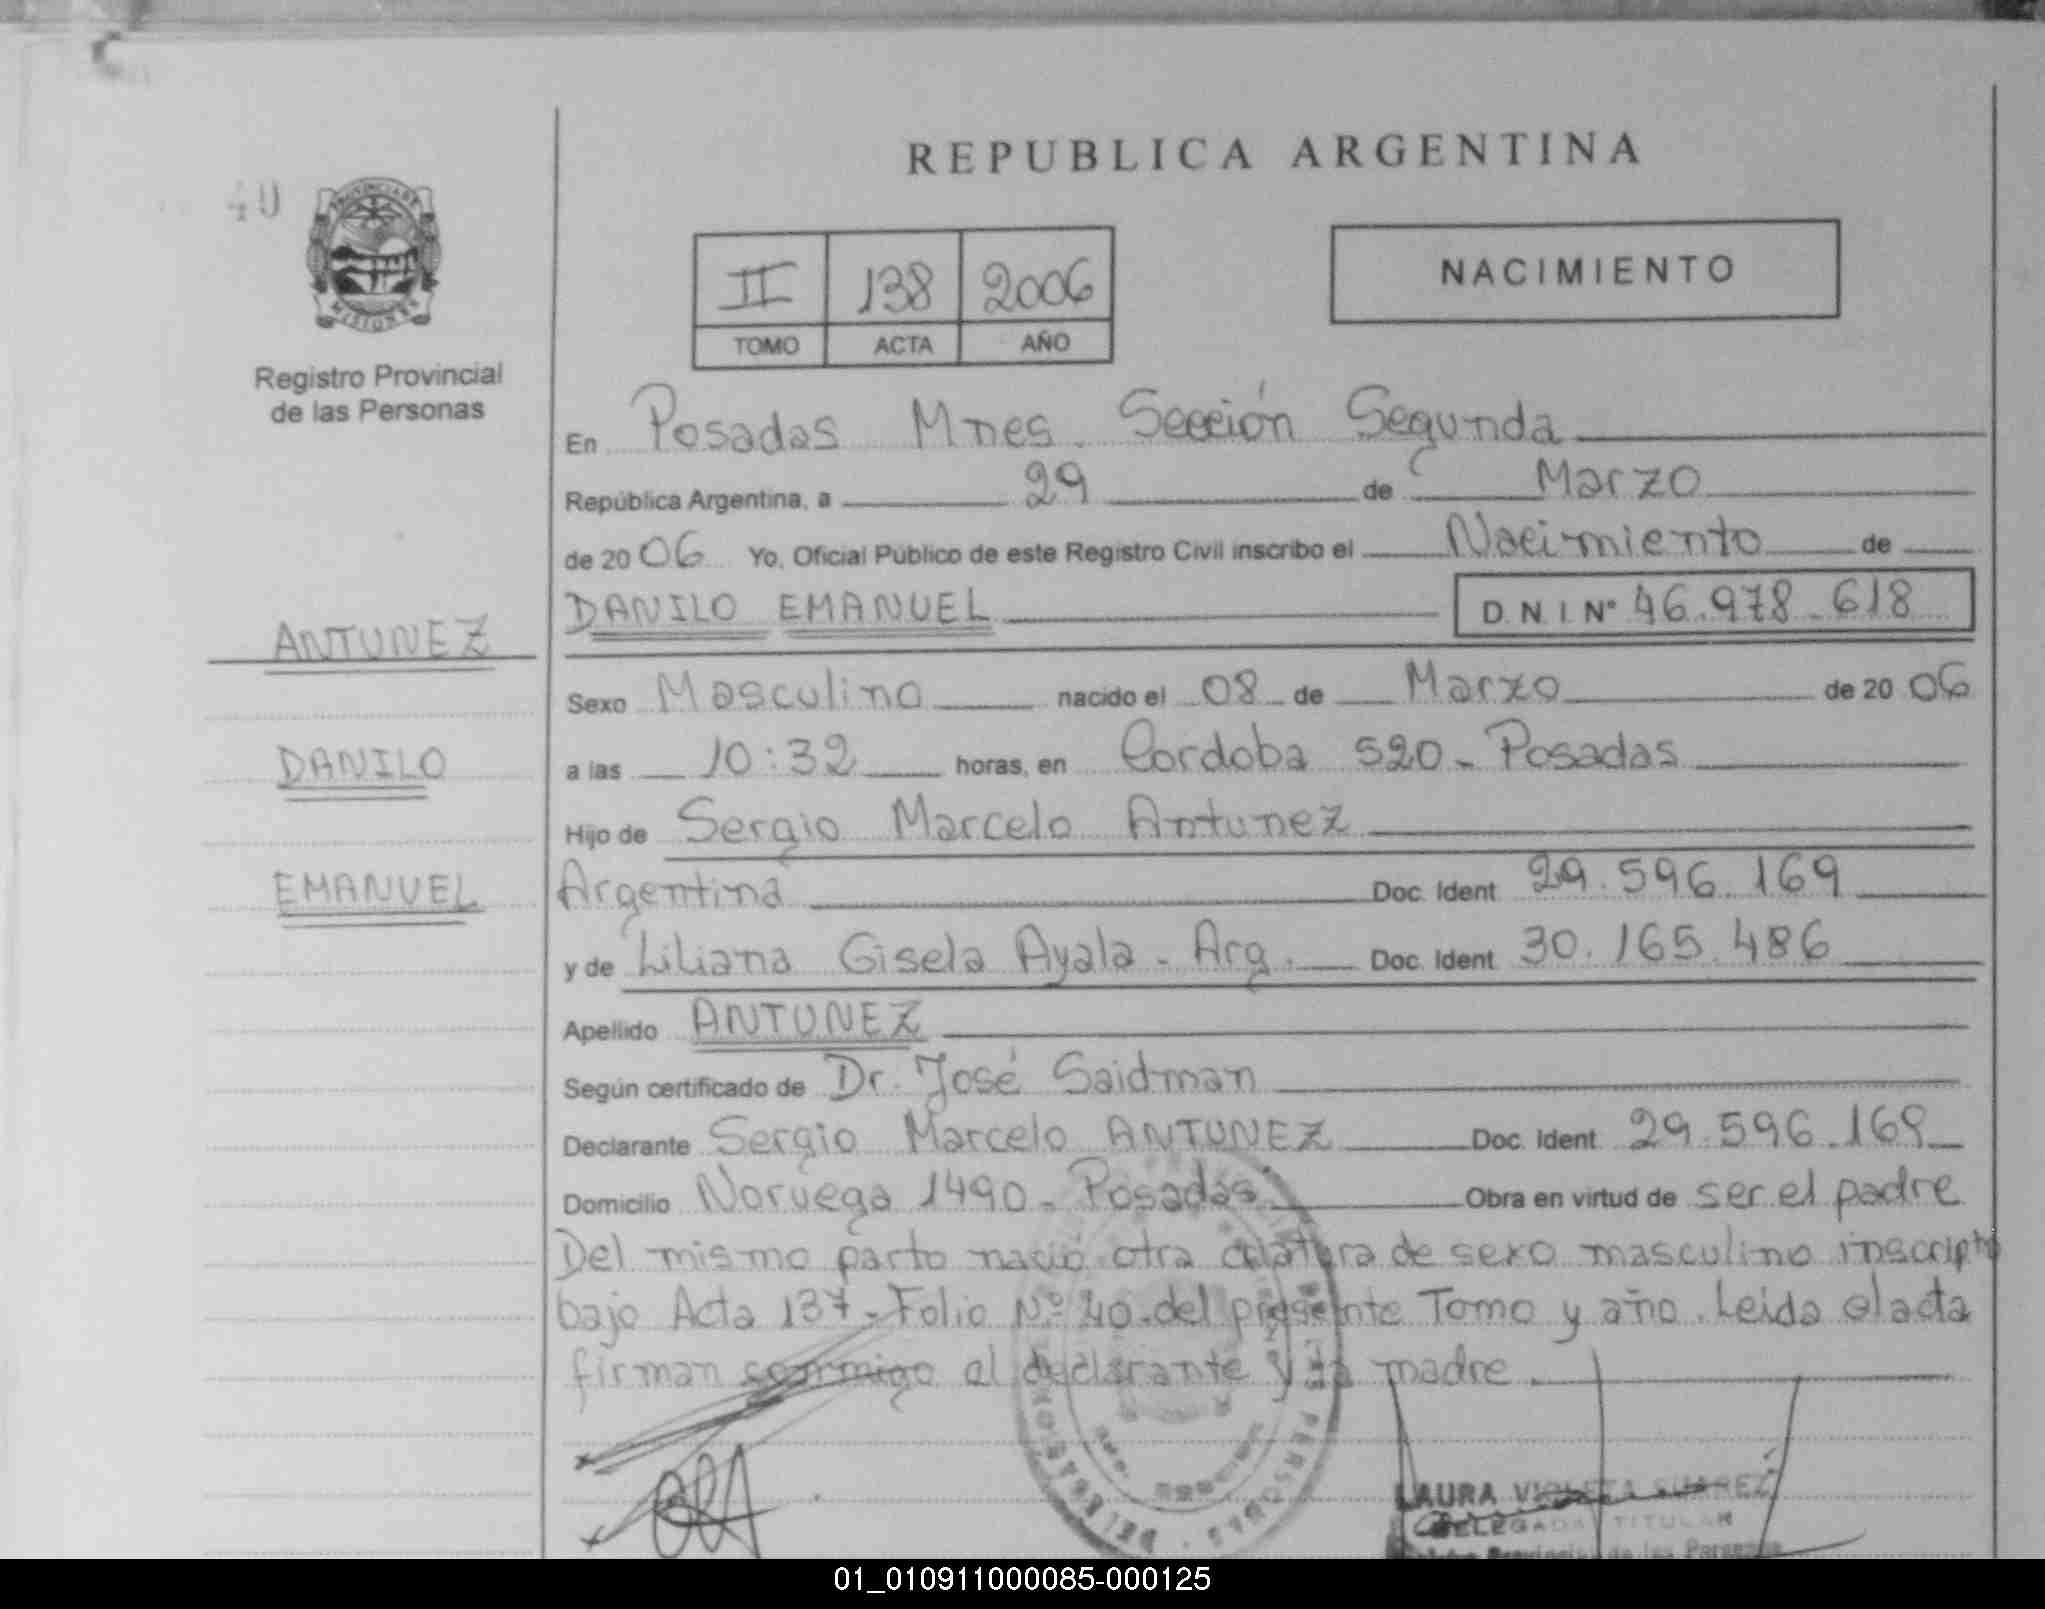 REPUBLICA ARGENTINA
40
PROVINCIA DE
MISIONES
Registro Provincial
de las Personas
II 138 2006
TOMO ACTA AÑO
NACIMIENTO
En Posadas Mnes. Sección Segunda
República Argentina, a 29 de Marzo
de 2006 Yo, Oficial Público de este Registro Civil inscribo el Nacimiento de
DANILO EMANUEL D.N.I. N° 46.978.618
ANTUNEZ
DANILO
EMANUEL
Sexo Masculino nacido el 08 de Marzo de 2006
a las 10:32 horas, en Cordoba 520 - Posadas
Hijo de Sergio Marcelo Antunez
Argentina Doc. Ident 29.596.169
y de Liliana Gisela Ayala - Arg. Doc. Ident 30.165.486
Apellido ANTUNEZ
Según certificado de Dr. José Saidman
Declarante Sergio Marcelo ANTUNEZ Doc. Ident. 29.596.169
Domicilio Noruega 1490 - Posadas Obra en virtud de ser el padre
Del mismo parto nació otra criatura de sexo masculino inscripto
bajo Acta 137 - Folio Nº 40 del presente Tomo y año. Leida el acta
firman conmigo el declarante y la madre
LAURA VIOLETA SUAREZ
DELEGADA TITULAR
Provincial de las Personas
01_010911000085-000125